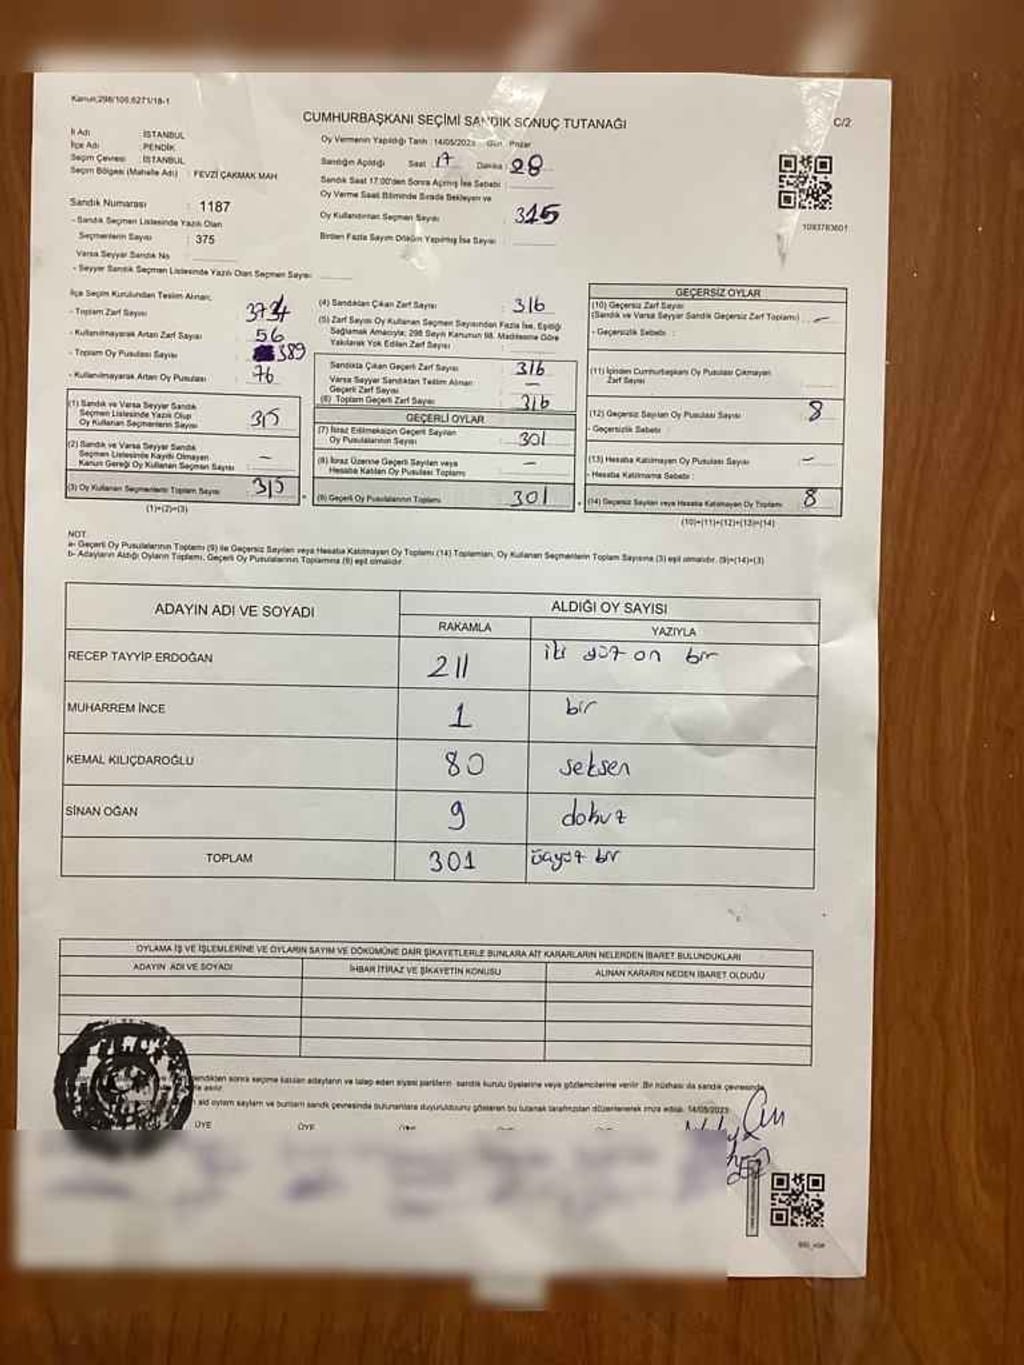 Kanun:298/106;6271/18-1
CUMHURBAŞKANI SEÇİMİ SANDIK SONUÇ TUTANAĞI
C/2
İl Adı : İSTANBUL
İlçe Adı : PENDİK
Seçim Çevresi : İSTANBUL
Seçim Bölgesi (Mahalle Adı) : FEVZİ ÇAKMAK MAH
Sandık Numarası : 1187
- Sandık Seçmen Listesinde Yazılı Olan
Seçmenlerin Sayısı : 375
Varsa Seyyar Sandık No
- Seyyar Sandık Seçmen Listesinde Yazılı Olan Seçmen Sayısı:
Oy Vermenin Yapıldığı Tarih : 14/05/2023 Gün : Pazar
Sandığın Açıldığı Saat : 17 Dakika : 28
Sandık Saat 17:00'den Sonra Açılmış İse Sebebi :
Oy Verme Saati Bitiminde Sırada Bekleyen ve
Oy Kullandırılan Seçmen Sayısı : 315
Birden Fazla Sayım Döküm Yapılmış İse Sayısı :
1093783601
İlçe Seçim Kurulundan Teslim Alınan;
- Toplam Zarf Sayısı :
- Kullanılmayarak Artan Zarf Sayısı : 56
- Toplam Oy Pusulası Sayısı : 389
- Kullanılmayarak Artan Oy Pusulası : 76
(1) Sandık ve Varsa Seyyar Sandık
Seçmen Listesinde Yazılı Olup
Oy Kullanan Seçmenlerin Sayısı : 315
(2) Sandık ve Varsa Seyyar Sandık
Seçmen Listesinde Kaydı Olmayan
Kanun Gereği Oy Kullanan Seçmen Sayısı : –
(3) Oy Kullanan Seçmenlerin Toplam Sayısı : 315
(1)+(2)=(3)
(4) Sandıktan Çıkan Zarf Sayısı : 316
(5) Zarf Sayısı Oy Kullanan Seçmen Sayısından Fazla İse, Eşitliği
Sağlamak Amacıyla; 298 Sayılı Kanunun 98. Maddesine Göre
Yakılarak Yok Edilen Zarf Sayısı :
Sandıkta Çıkan Geçerli Zarf Sayısı : 316
Varsa Seyyar Sandıktan Teslim Alınan
Geçerli Zarf Sayısı : –
(6) Toplam Geçerli Zarf Sayısı : 316
GEÇERLİ OYLAR
(7) İtiraz Edilmeksizin Geçerli Sayılan
Oy Pusulalarının Sayısı : 301
(8) İtiraz Üzerine Geçerli Sayılan veya
Hesaba Katılan Oy Pusulası Toplamı : –
(9) Geçerli Oy Pusulalarının Toplamı : 301
GEÇERSİZ OYLAR
(10) Geçersiz Zarf Sayısı
(Sandık ve Varsa Seyyar Sandık Geçersiz Zarf Toplamı) : –
- Geçersizlik Sebebi :
(11) İçinden Cumhurbaşkanı Oy Pusulası Çıkmayan
Zarf Sayısı :
(12) Geçersiz Sayılan Oy Pusulası Sayısı : 8
- Geçersizlik Sebebi :
(13) Hesaba Katılmayan Oy Pusulası Sayısı : –
- Hesaba Katılmama Sebebi :
(14) Geçersiz Sayılan veya Hesaba Katılmayan Oy Toplamı : 8
(10)+(11)+(12)+(13)=(14)
NOT:
a- Geçerli Oy Pusulalarının Toplamı (9) ile Geçersiz Sayılan veya Hesaba Katılmayan Oy Toplamı (14) Toplamları, Oy Kullanan Seçmenlerin Toplam Sayısına (3) eşit olmalıdır. (9)+(14)=(3)
b- Adayların Aldığı Oyların Toplamı, Geçerli Oy Pusulalarının Toplamına (9) eşit olmalıdır.
ADAYIN ADI VE SOYADI
ALDIĞI OY SAYISI
RAKAMLA YAZIYLA
RECEP TAYYİP ERDOĞAN 211 iki yüz on bir
MUHARREM İNCE 1 bir
KEMAL KILIÇDAROĞLU 80 seksen
SİNAN OĞAN 9 dokuz
TOPLAM 301 üçyüz bir
OYLAMA İŞ VE İŞLEMLERİNE VE OYLARIN SAYIM VE DÖKÜMÜNE DAİR ŞİKAYETLERLE BUNLARA AİT KARARLARIN NELERDEN İBARET BULUNDUKLARI
ADAYIN ADI VE SOYADI İHBAR İTİRAZ VE ŞİKAYETİN KONUSU ALINAN KARARIN NEDEN İBARET OLDUĞU
sonra seçime katılan adayların ve talep eden siyasi partilerin sandık kurulu üyelerine veya gözlemcilerine verilir. Bir nüshası da sandık çevresinde
asılır.
ait oyların sayılarını ve bunların sandık çevresinde bulunanlara duyurulduğunu gösteren bu tutanak tarafımızdan düzenlenerek imza edildi. 14/05/2023
ÜYE ÜYE